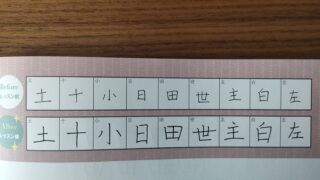 Before
レッスン前
土 十 小 日 田 世 主 白 左
After
レッスン後
土 十 小 日 田 世 主 白 左